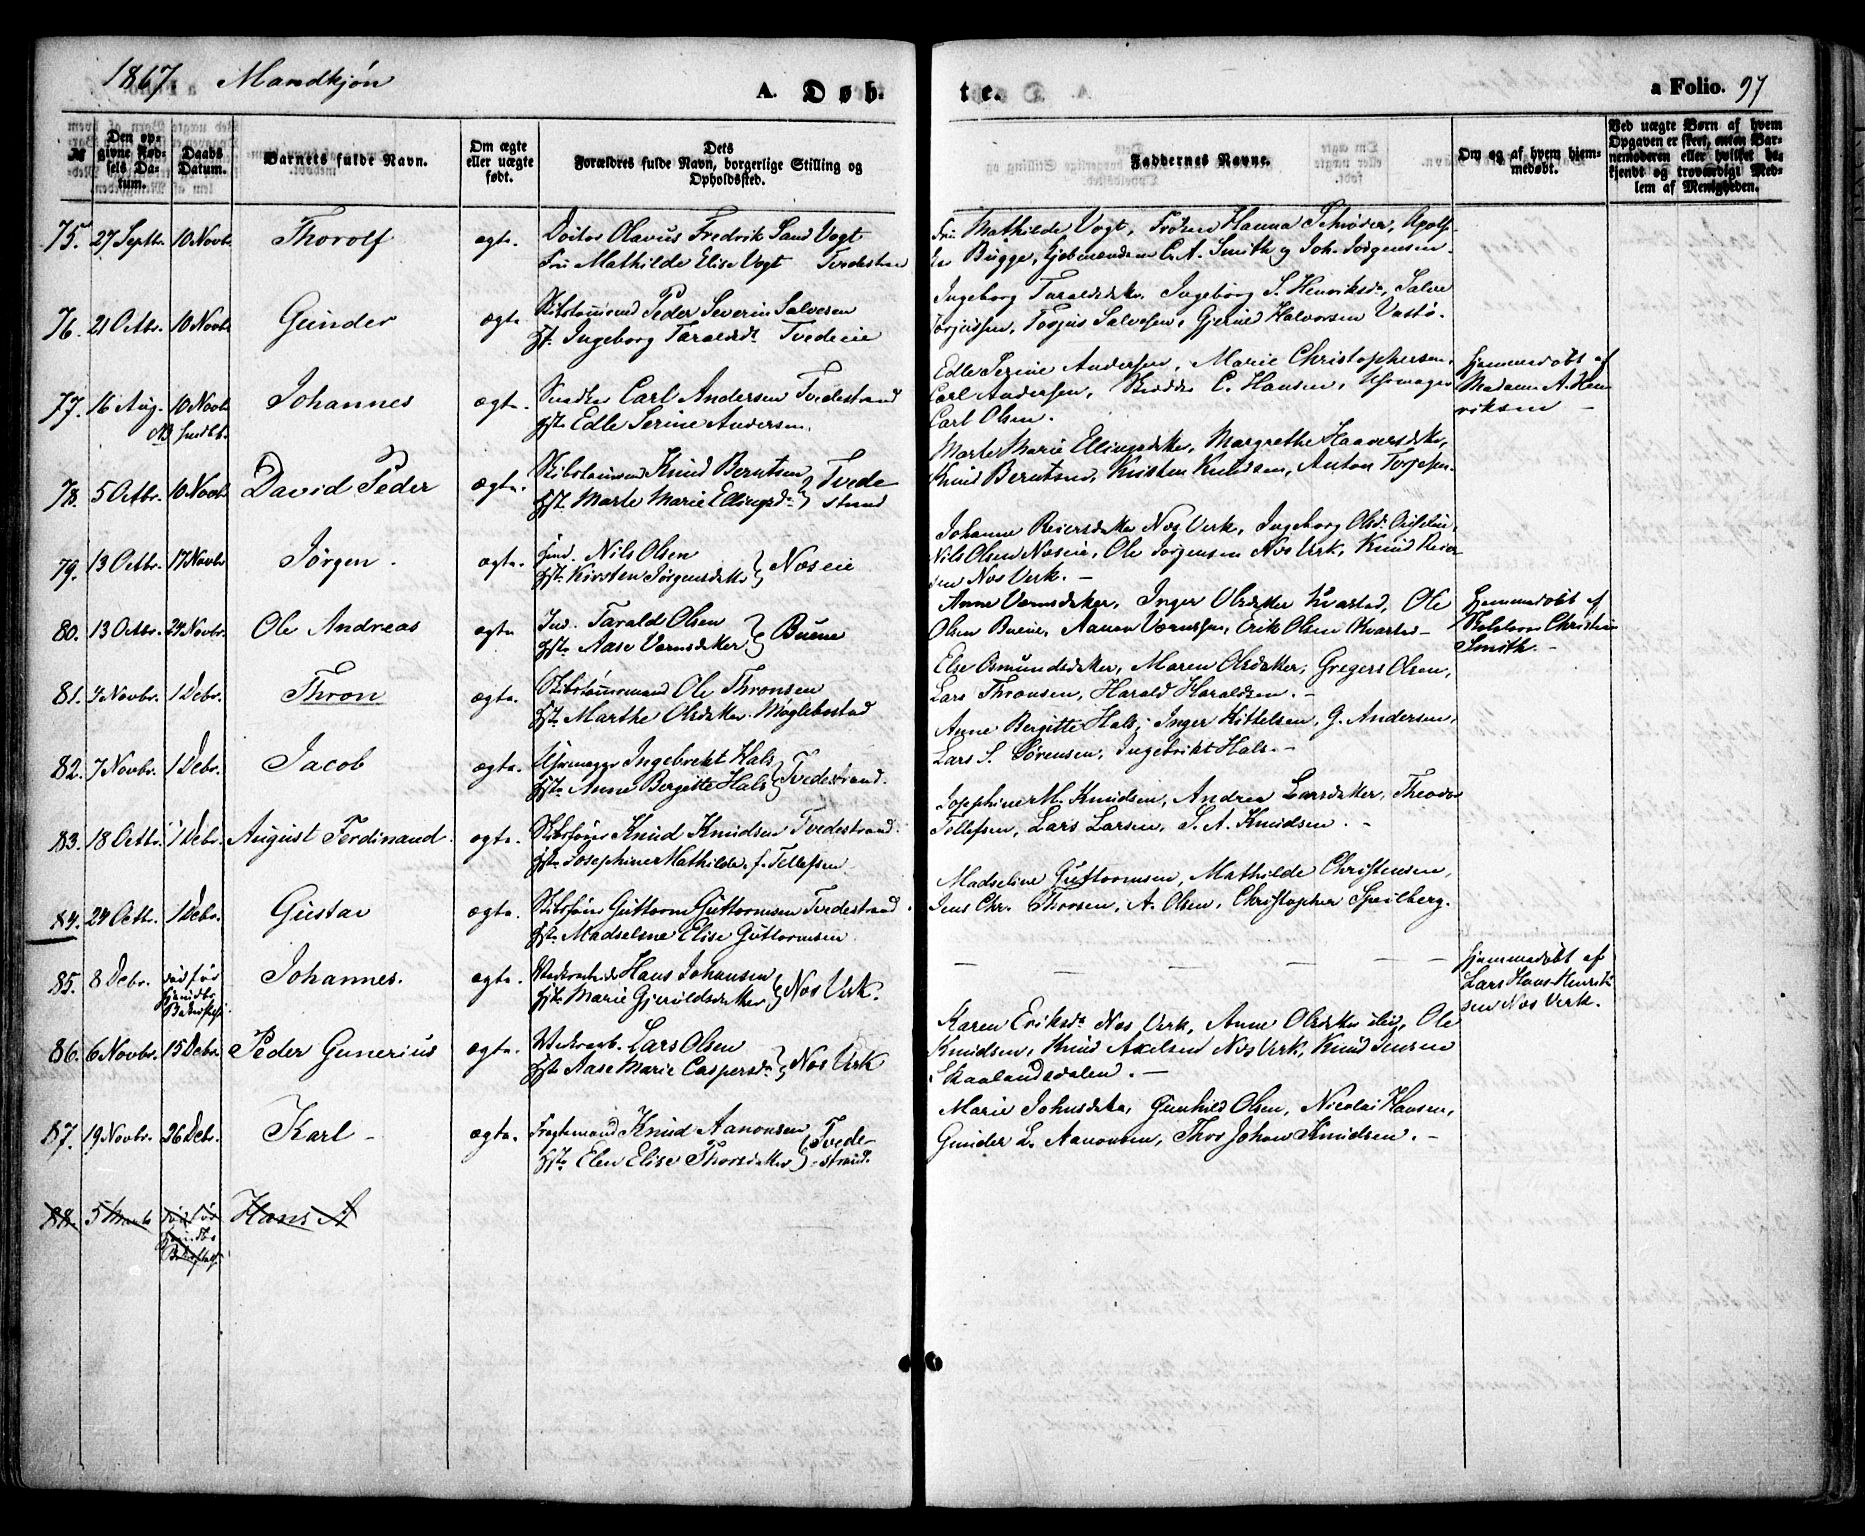 1867. Mandkjøn
A. Døb-
te.
a Folio. 97
№
Den op-
givne Fød-
sels Da-
tum.
Daabs
Datum.
Barnets fulde Navn.
Om ægte
eller uægte
født.
Dets
Forældres fulde Navn, borgerlige Stilling og
Opholdssted.
Faddernes Navne.
Om og af hvem hjem-
medøbt.
Ved uægte Børn af hvem
Opgaven er skeet, enten Bar-
nemoderen eller hvilket be-
kjendt og troværdigt Med-
lem af Menigheden.
75. 27 Septb. 10 Novb. Thorolf ægte. Doctor Olavus Fredrik Sand Vogt
Fru Mathilde Elise Vogt Tvedestrand
Fru Mathilde Vogt, Frøken Hanna Schrøder,
Bugge, Kjøbmændene C. A. Smith og Joh. Jørgensen.
76. 21 Octbr. 10 Novb. Gunder ægte. Skibstømmd Peder Severin Salvesen
Hst. Ingeborg Taraldsdt. Tvedeeie
Ingeborg Taraldsdatter, Ingeborg S. Henriksdr., Salve
Torjussen, Torjus Salvesen, Gjerud Halvorsen Vastø.
77. 16 Aug. 10 Novb. Johannes ægte. Snedker Carl Andersen Tvedestrand
Hst. Edle Serine Andersen.
Edle Serine Andersen, Marie Christophersen,
Carl Andersen, C. Hansen, Uhrmager
Carl Olsen.
Hjemmedøbt af
Madam A. Hen-
riksen –
78. 5 Octbr. 10 Novb. David Peder ægte. Skibstømmd Knud Berntsen } Tvede-
Hst. Marte Marie Ellingsdr. } strand
Marte Marie Ellingsdatter, Margrethe Haaversdatter,
Knud Berntsen, Kristen Knudsen, Anton Torjesen.
79. 13 Octbr. 17 Novbr. Jørgen. ægte. Nils Olsen } Næs eie
Hst. Kirsten Jørgensdatter }
Johanne Reiersdatter Næs Verk, Ingeborg Olsdr.
Nils Olsen Næseie, Ole Jørgensen Næs Verk, Knud Reier-
sen Næs Verk. –
80. 13 Octbr. 24 Novbr. Ole Andreas ægte Ind. Tarald Olsen } Buene
Hst. Aase Værnsdatter }
Anne Værnsdatter, Inger Olsdatter Kvastad, Ole
Olsen Buene, Aanon Værnssen, Erik Olsen Kvastad –
Hjemmedøbt af
Christian
Smith. –
81. 4 Novbr. 1 Debr. Thron ægte. Skibstømmermand Ole Thronsen
Hst. Marthe Olsdatter Møglebostad
Else Osmundsdatter, Maren Olsdatter, Gregers Olsen,
Lars Thronsen, Harald Haraldsen. –
82. 7 Novbr. 1 Debr. Jacob ægte. Uhrmager Ingebrekt Hals } Tvedestrand.
Hst. Anne Bergitte Hals }
Anne Bergitte Hals, Inger Kittelsen, G. Andersen,
Lars S. Sørensen, Ingebrikt Hals. –
83. 18 Octbr. 1 Debr. August Ferdinand. ægte. Skibsfører Knud Knudsen Tvedestrand.
Hst. Josephine Mathilde f. Tellefsen
Josephine M. Knudsen, Andrea Larsdatter, Theodor
Tellefsen, Lars Larsen, S. A. Knudsen. –
84. 24 Octb. 1 Debr. Gustav ægte. Skibsfører Guttorm Guttormsen Tvedestrand.
Hst. Madseline Elise Guttormsen
Madseline Guttormsen, Mathilde Christensen,
Jens Chr. Thorsen, A. Olsen, Christopher Speilberg.
85. 8 Debr. død før
Johannes. ægte. Verksarbeider Hans Johansen } Næs Verk.
Hst. Marie Gjeruldsdatter }
– – – – – –
Hjemmedøbt af
Lars Hans Henrik-
sen Næs Verk.
86. 6 Novbr. 15 Debr. Peder Gunerius ægte. Verksarb. Lars Olsen } Næs Verk
Hst. Aase Marie Caspersdr. }
Karen Eriksdr. Næs Verk, Anne Olsdatter ibid, Ole
Knudsen, Knud Axelsen Næs Verk, Knud Jensen
Skaalandsdalen. –
87. 19 Novbr. 26 Debr. Karl – ægte. Fragtemand Knud Aanonsen } Tvede-
Hst. Elen Elise Thorsdatter } strand.
Marie Johnsdatter, Gunhild Olsen, Nicolai Hansen,
Gunder L. Aanonsen, Thor Johan Knudsen. –
88. 5 død før Hans A